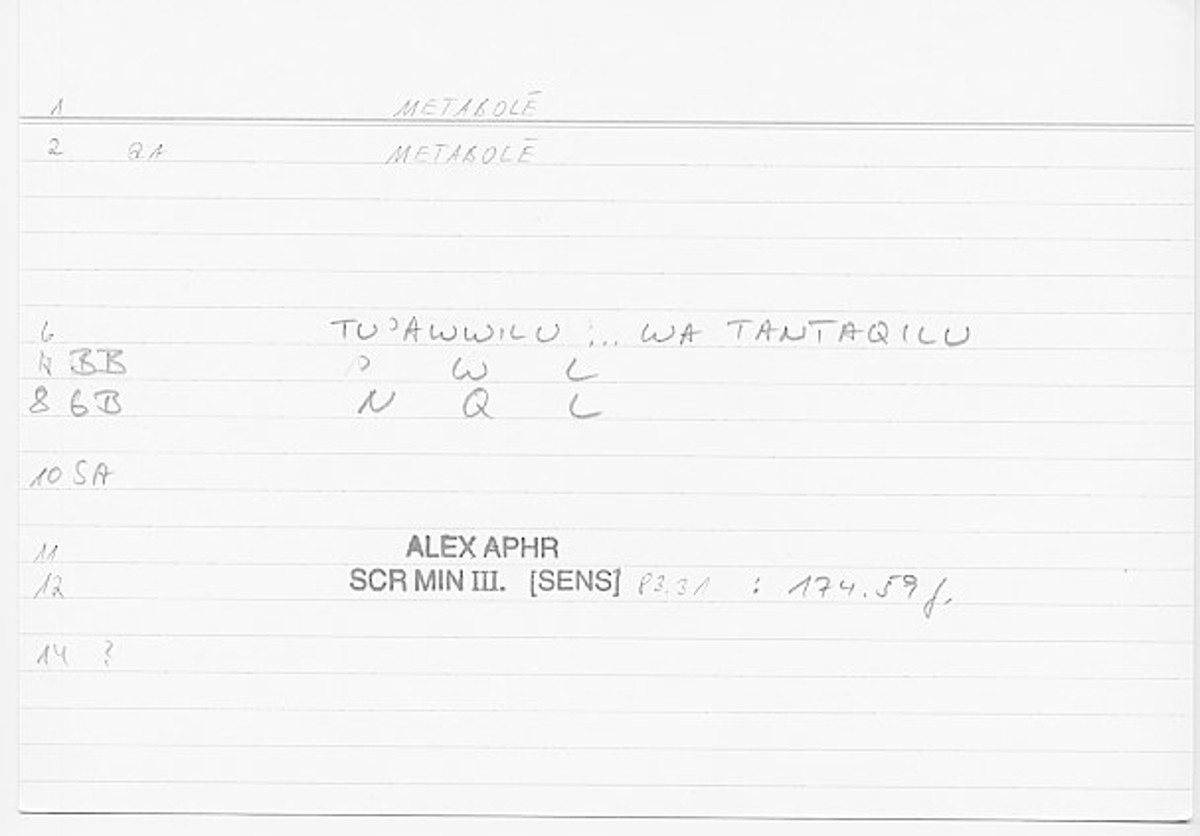 1 METABOLĒ
2 2A METABOLĒ
6 TUʾAWWILU ... WA TANTAQILU
BB ʾ W L
8 6B N Q L
10 SA
11 ALEX APHR
12 SCR MIN III. [SENS] 83.31 : 174.59 f.
14 ?